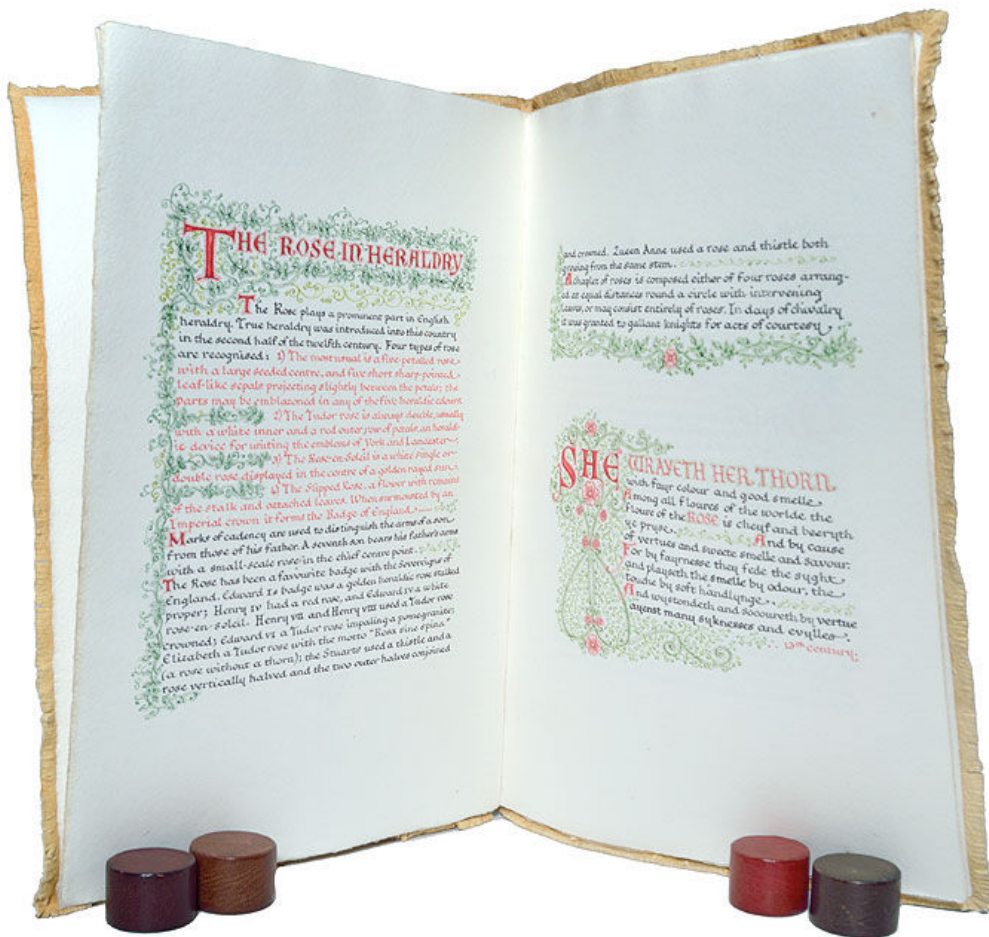 THE ROSE IN HERALDRY
The Rose plays a prominent part in English
heraldry. True heraldry was introduced into this country
in the second half of the twelfth century. Four types of rose
are recognised: 1) The most usual is a five-petalled rose
with a large seeded centre, and five short sharp-pointed
leaf-like sepals projecting slightly between the petals; the
parts may be emblazoned in any of the five heraldic colours
2) The Tudor rose is always double, usually
with a white inner and a red outer row of petals, an herald-
ic device for uniting the emblems of York and Lancaster
3) The Rose-en-Soleil is a white single or
double rose displayed in the centre of a golden rayed sun.
4) The Slipped Rose, a flower with remains
of the stalk and attached leaves. When surmounted by an
Imperial crown it forms the Badge of England
Marks of cadency are used to distinguish the arms of a son
from those of his father. A seventh son bears his father's arms
with a small-scale rose in the chief centre point.
The Rose has been a favourite badge with the Sovereigns of
England. Edward I's badge was a golden heraldic rose stalked
proper; Henry IV had a red rose, and Edward IV a white
rose-en-soleil. Henry VII and Henry VIII used a Tudor rose
crowned; Edward VI a Tudor rose impaling a pomegranate;
Elizabeth a Tudor rose with the motto "Rosa sine spina"
(a rose without a thorn); the Stuarts used a thistle and a
rose vertically halved and the two outer halves conjoined
and crowned. Queen Anne used a rose and thistle both
growing from the same stem.
A chaplet of roses is composed either of four roses arrang-
ed at equal distances round a circle with intervening
leaves, or may consist entirely of roses. In days of chivalry
it was granted to gallant knights for acts of courtesy
SHE WRAYETH HER THORN
with fayr colour and good smelle
Among all floures of the worlde the
floure of the ROSE is cheyf and beeryth
ye pryse. And by cause
of vertues and sweete smelle and savour:
For by fayrnesse they fede the syght
and playseth the smelle by odour, the
touche by soft handlynge.
And wystondeth and socoureth by vertue
ayenst many syknesses and evylles
13th century.